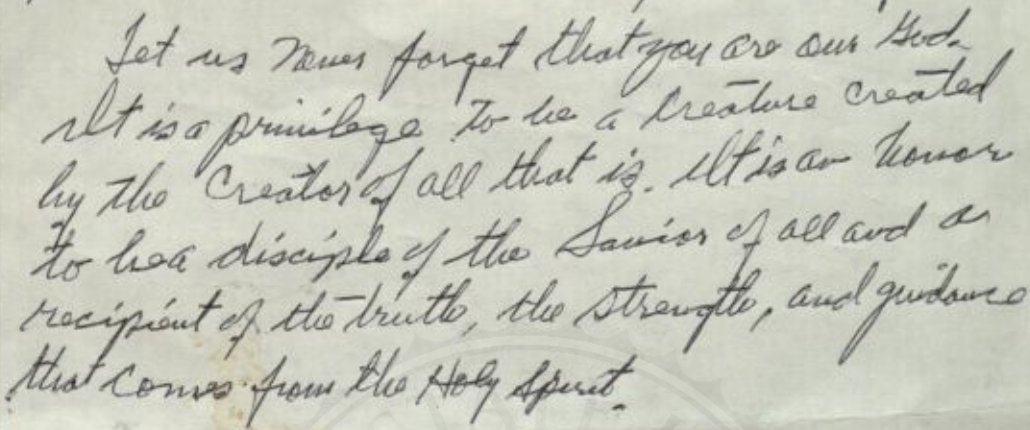 Let us never forget that you are our God.
It is a privilege to be a creature created
by the Creator of all that is. It is an honor
to be a disciple of the Savior of all and a
recipient of the truth, the strength, and guidance
that comes from the Holy Spirit.